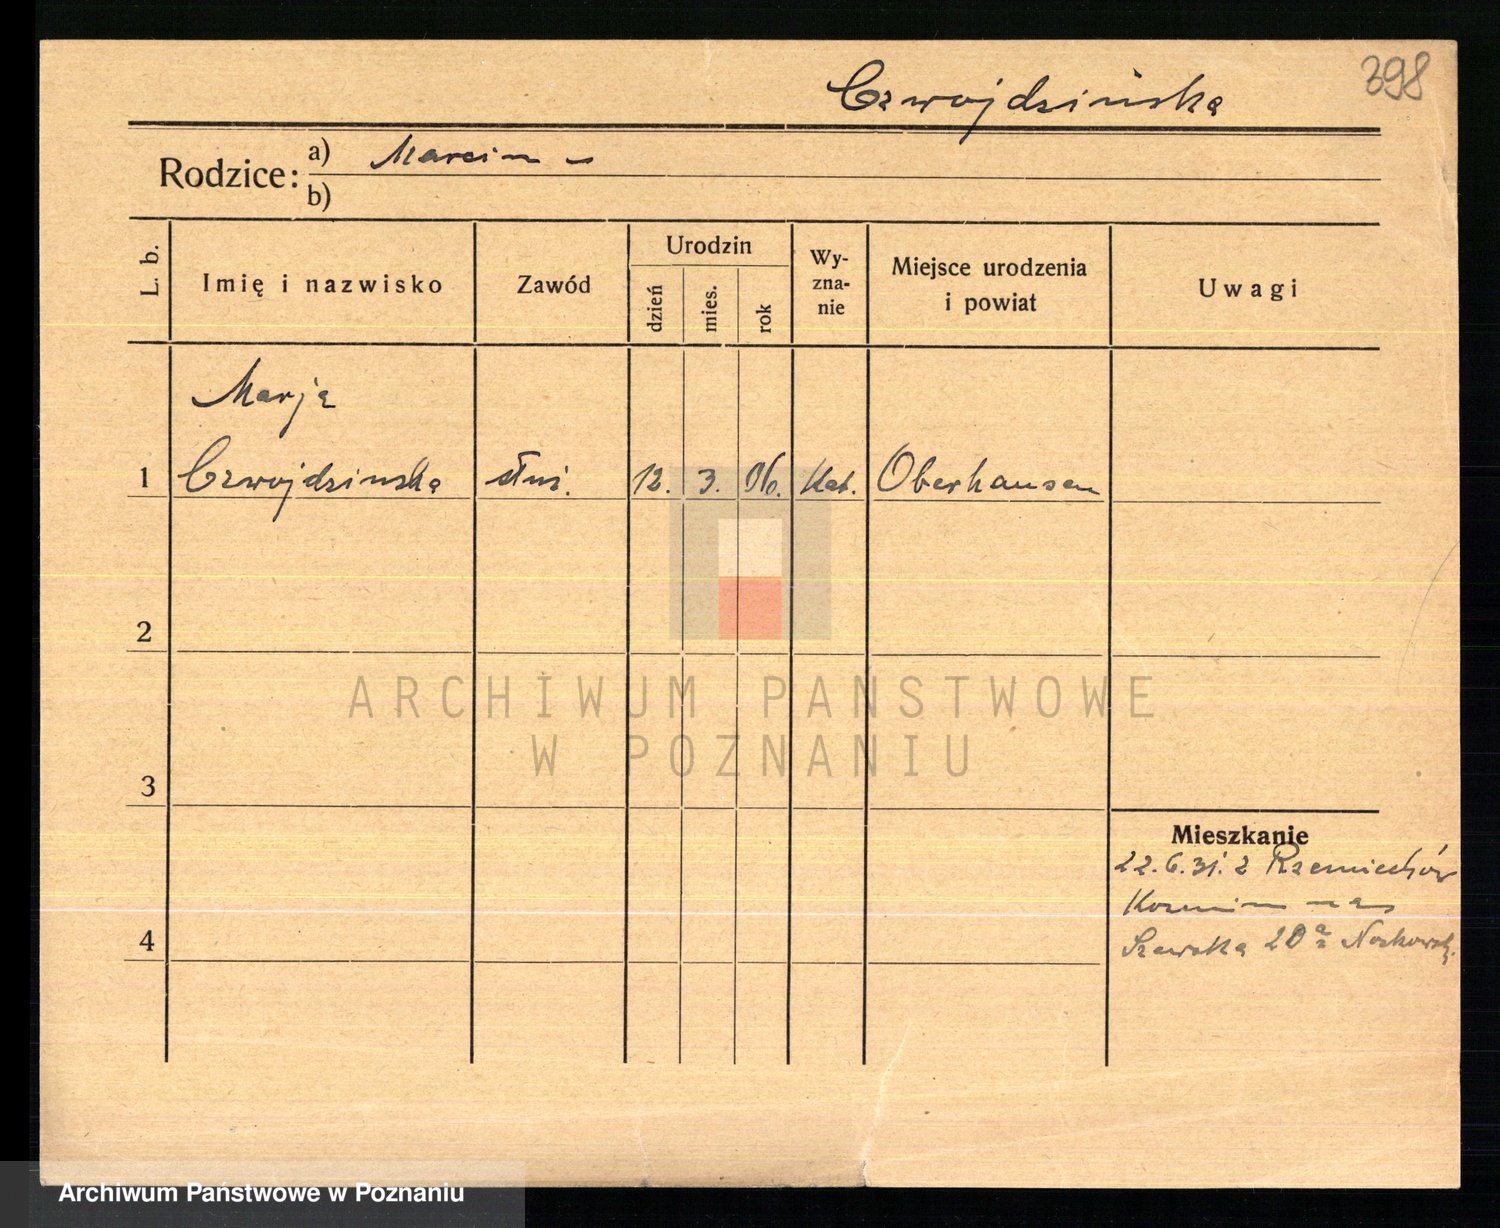 398
Czwojdzińska
Rodzice: a) Marcin
b)
L. b. Imię i nazwisko Zawód Urodzin dzień mies. rok Wyznanie Miejsce urodzenia i powiat Uwagi
Marja
1 Czwojdzinska służ. 12. 3. 06. Kat. Oberhausen
2
ARCHIWUM PAŃSTWOWE
W POZNANIU
3
Mieszkanie
22.6.31. z Rzemiechów
Kozmin
4
Szewska 20
Archiwum Państwowe w Poznaniu